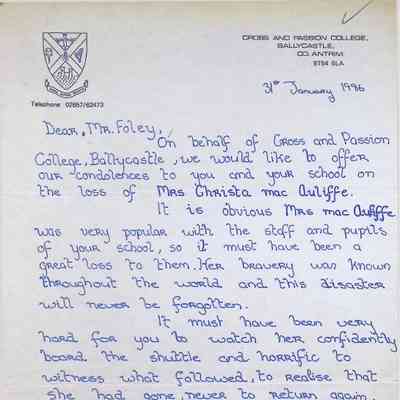 CROSS AND PASSION COLLEGE,
BALLYCASTLE,
CO. ANTRIM
BT54 6LA
31st January 1986
Telephone 02657/62473
Dear, Mr. Foley,
On behalf of Cross and Passion
College, Ballycastle, we would like to offer
our condolences to you and your school on
the loss of Mrs Christa mac Auliffe.
It is obvious Mrs mac Auliffe
was very popular with the staff and pupils
of your school, so it must have been a
great loss to them. Her bravery was known
throughout the world and this disaster
will never be forgotten.
It must have been very
hard for you to watch her confidently
board the shuttle and horrific to
witness what followed, to realise that
she had gone, never to return again.